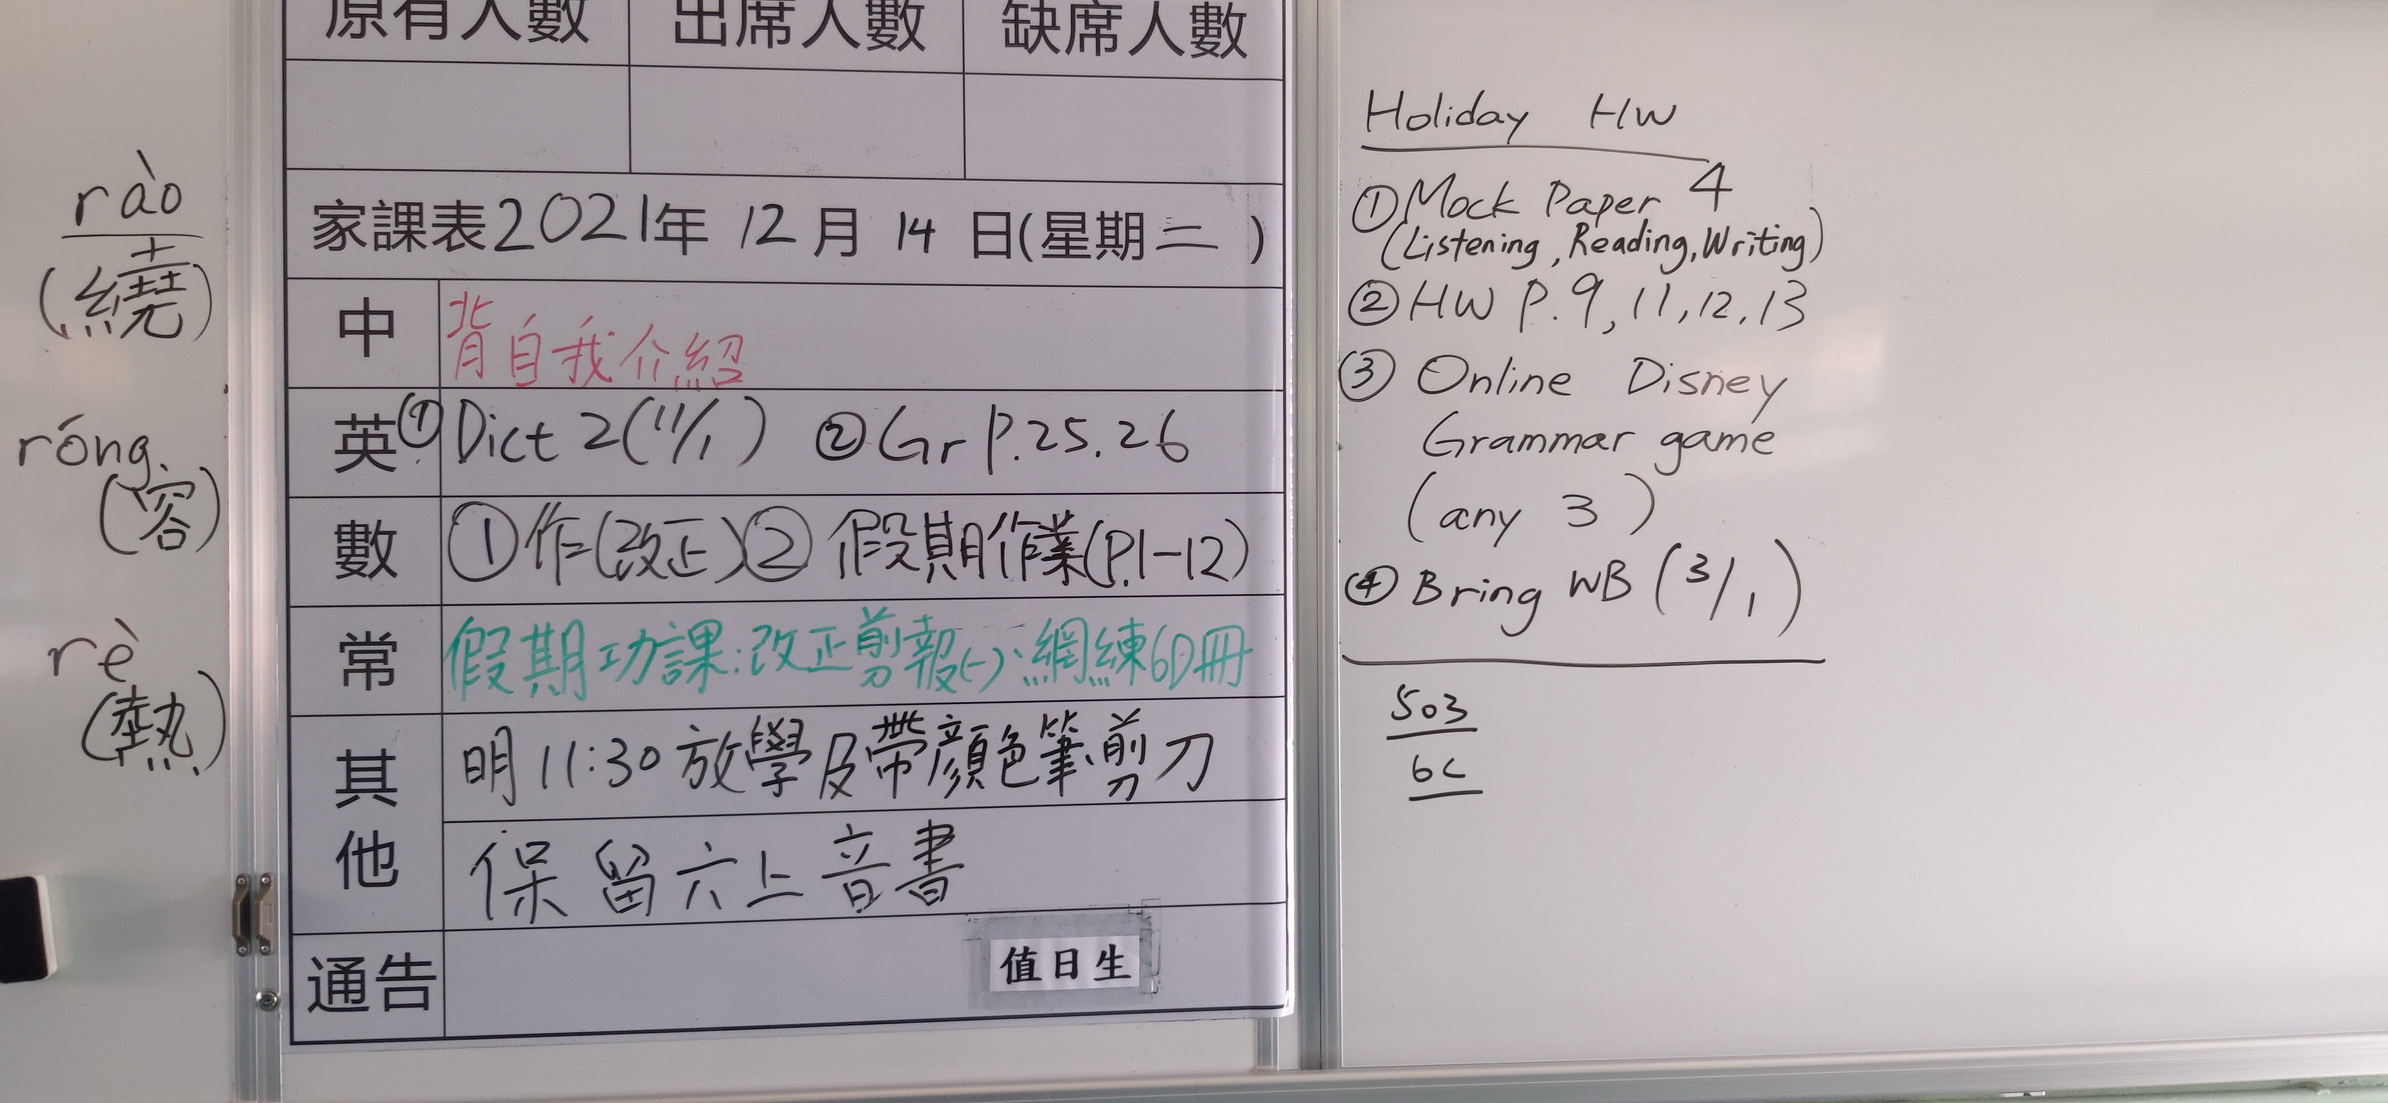 rào
(繞)
róng
(容)
rè
(熱)
原有人數 出席人數 缺席人數
家課表2021年 12月 14日(星期二 )
中 背自我介紹
英 ①Dict 2(11/1) ②Gr P.25.26
數 ①作(改正)② 假期作業(P.1-12)
常 假期功課:改正剪報(一)、網練6D冊
其他 明11:30放學及帶顏色筆、剪刀
保留六上音書
通告
值日生
Holiday HW
①Mock Paper 4
(Listening, Reading, Writing)
②HW P.9, 11, 12, 13
③ Online Disney
Grammar game
(any 3)
④ Bring WB (3/1)
503
6C